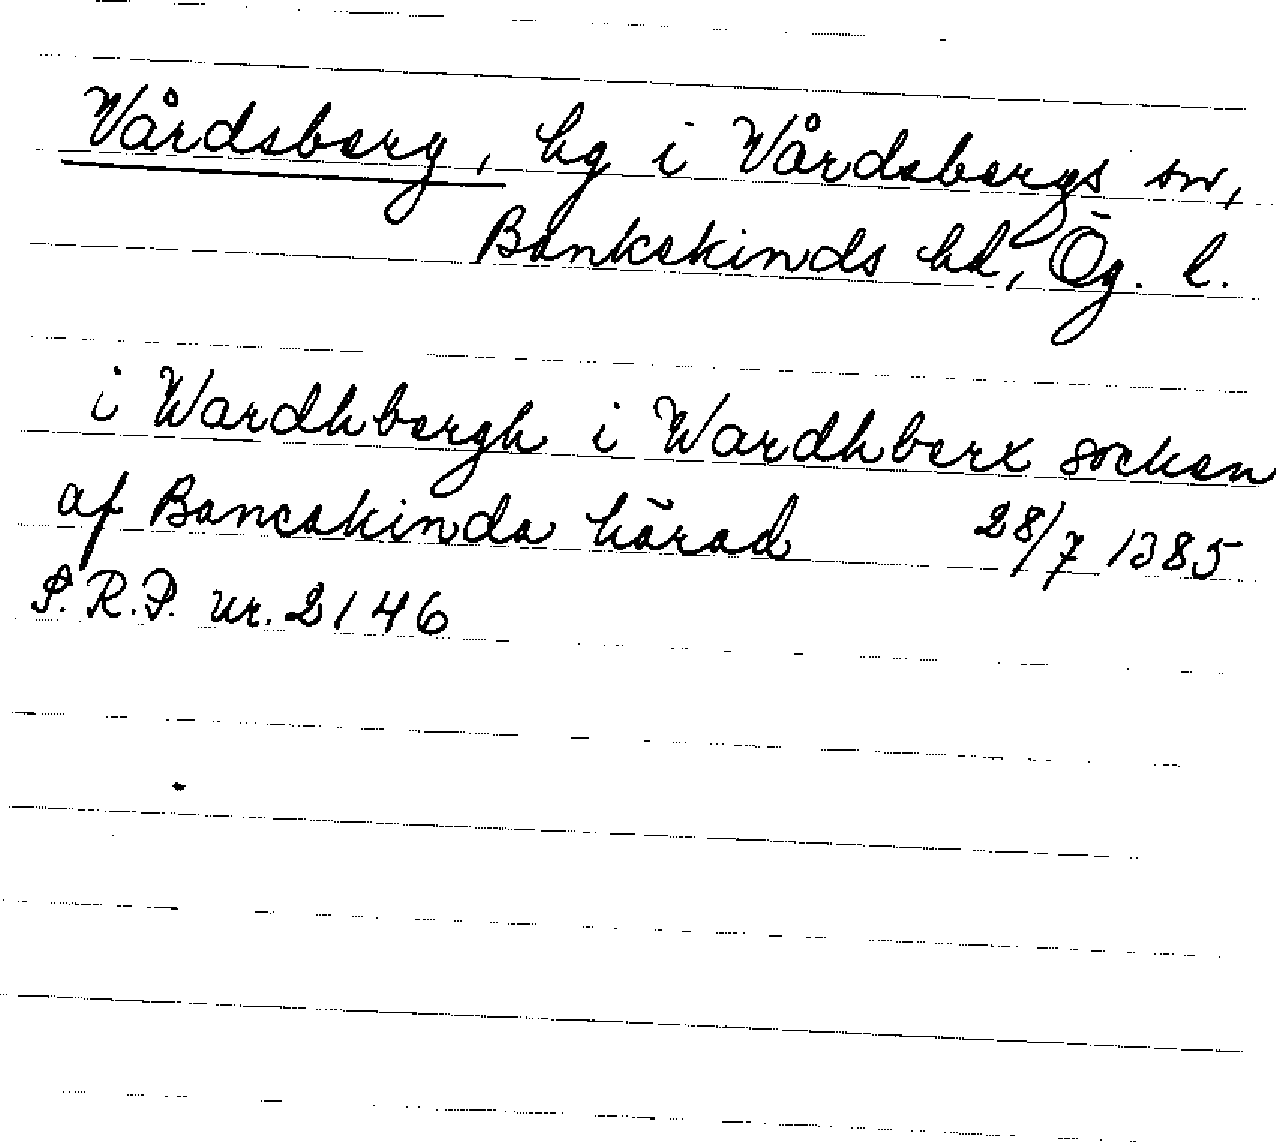 Vårdsberg, hg i Vårdsbergs sn,
Bankekinds hd, Ög. l.
i Wardhbergh i Wardhberx socken
af Bancakinda härad 28/7 1385
S.R.P. nr. 2146